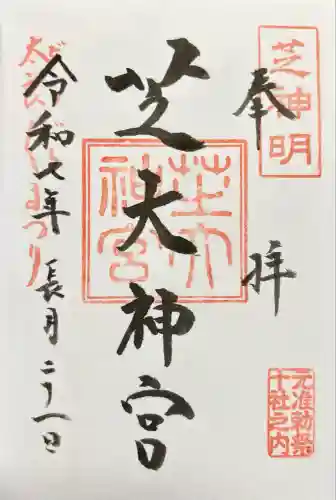 芝神明
奉拝
芝大神宮
芝大神宮
元准勅祭
十社之内
だらだらまつり
令和七年長月二十一日